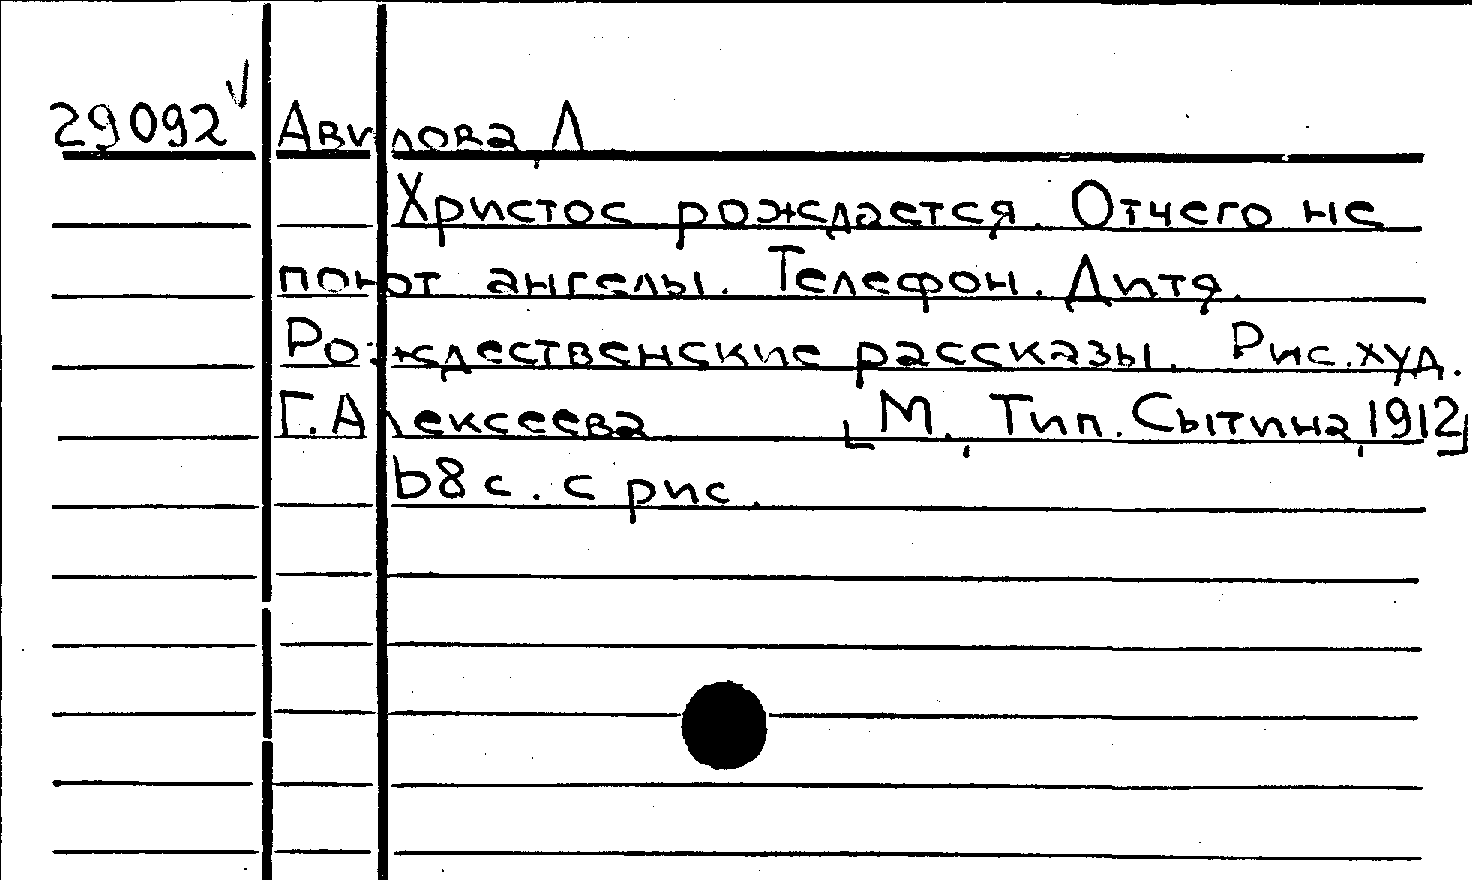 29092 √ Авилова, Л
Христос рождается. Отчего не
поют ангелы. Телефон. Дитя.
Рождественские рассказы. Рис. худ.
Г. Алексеева [М., Тип. Сытина, 1912]
68 с. с рис.